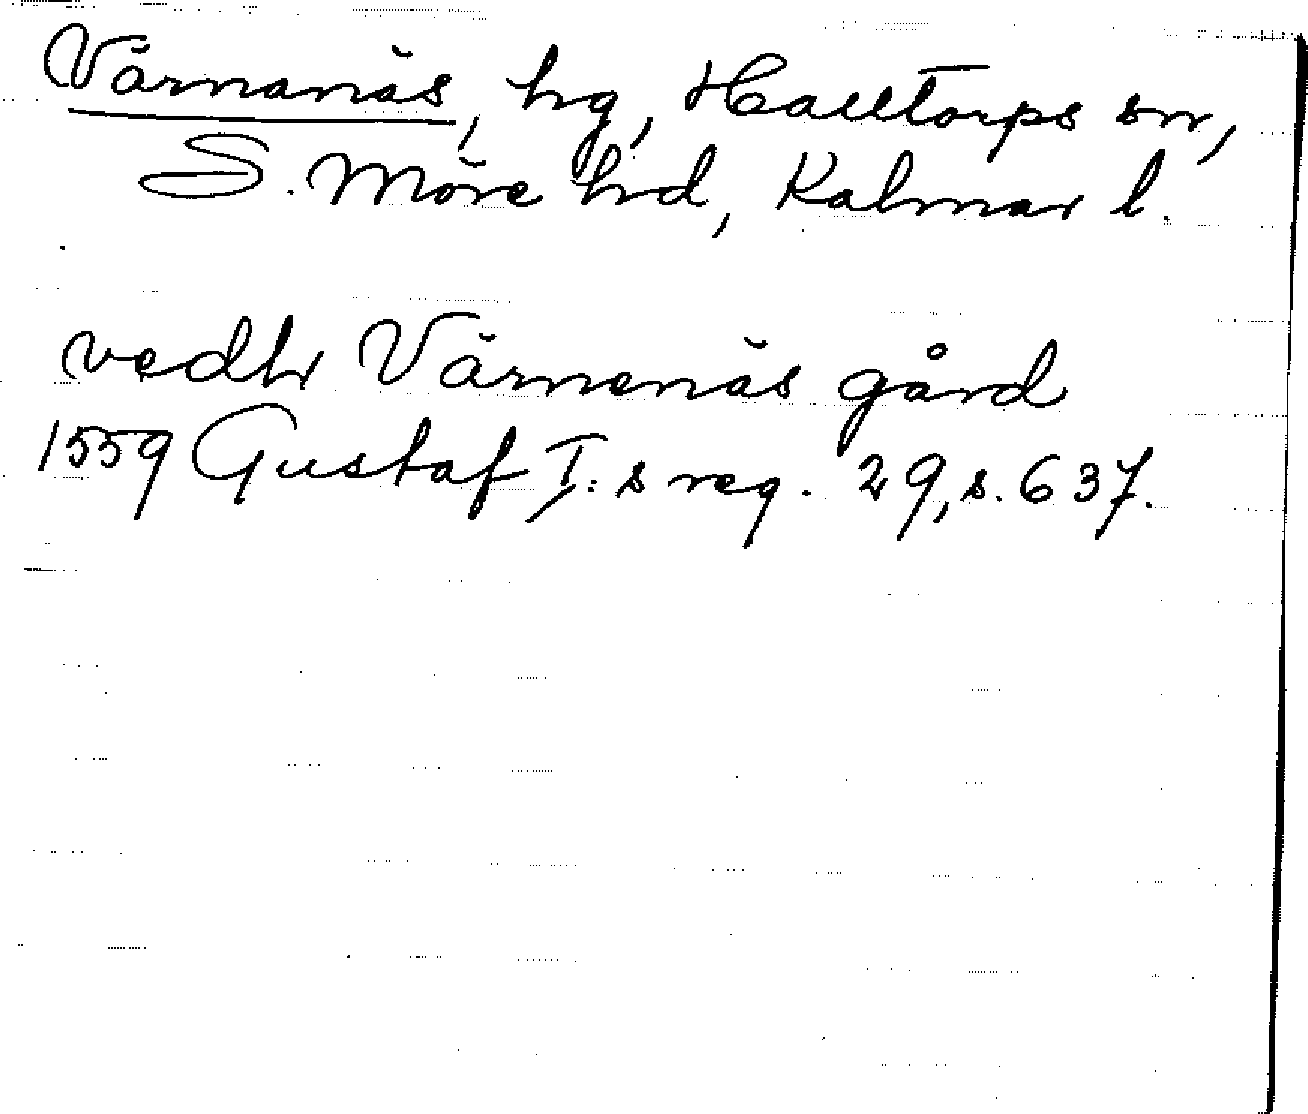 Värnanäs, hg, Halltorps sn,
S. Möre hd, Kalmar l.
vedh Värnenäs gård
1559 Gustaf I:s reg. 29, s. 637.